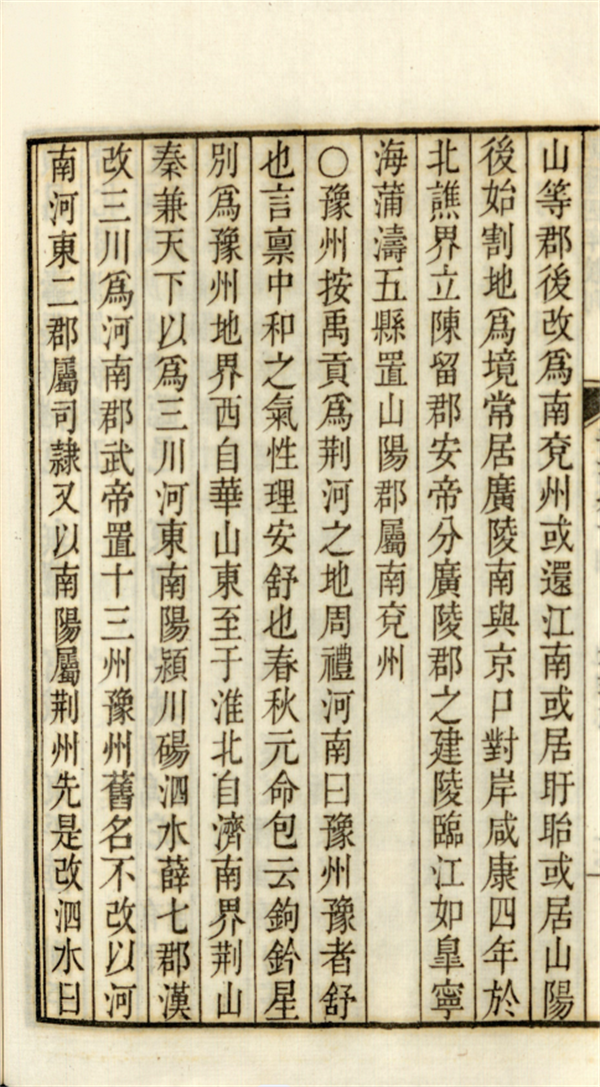 山等郡後改爲南兗州或還江南或居盱眙或居山陽
後始割地爲境常居廣陵南與京口對岸咸康四年於
北譙界立陳留郡安帝分廣陵郡之建陵臨江如臯寧
海蒲濤五縣置山陽郡屬南兗州
〇豫州按禹貢爲荆河之地周禮河南曰豫州豫者舒
也言禀中和之氣性理安舒也春秋元命包云鉤鈐星
別爲豫州地界西自華山東至于淮北自濟南界荆山
秦兼天下以爲三川河東南陽潁川碭泗水薛七郡漢
改三川爲河南郡武帝置十三州豫州舊名不改以河
南河東二郡屬司隸又以南陽屬荆州先是改泗水曰